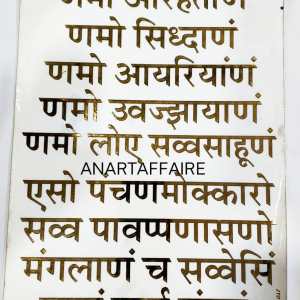 णमो अरिहंताणं
णमो सिध्दाणं
णमो आयरियांणं
णमो उवज्झायाणं
णमो लोए सव्वसाहूणं
ANARTAFFAIRE
एसो पंचणमोक्कारो
सव्व पावप्पणासणो
मंगलाणं च सव्वेसिं